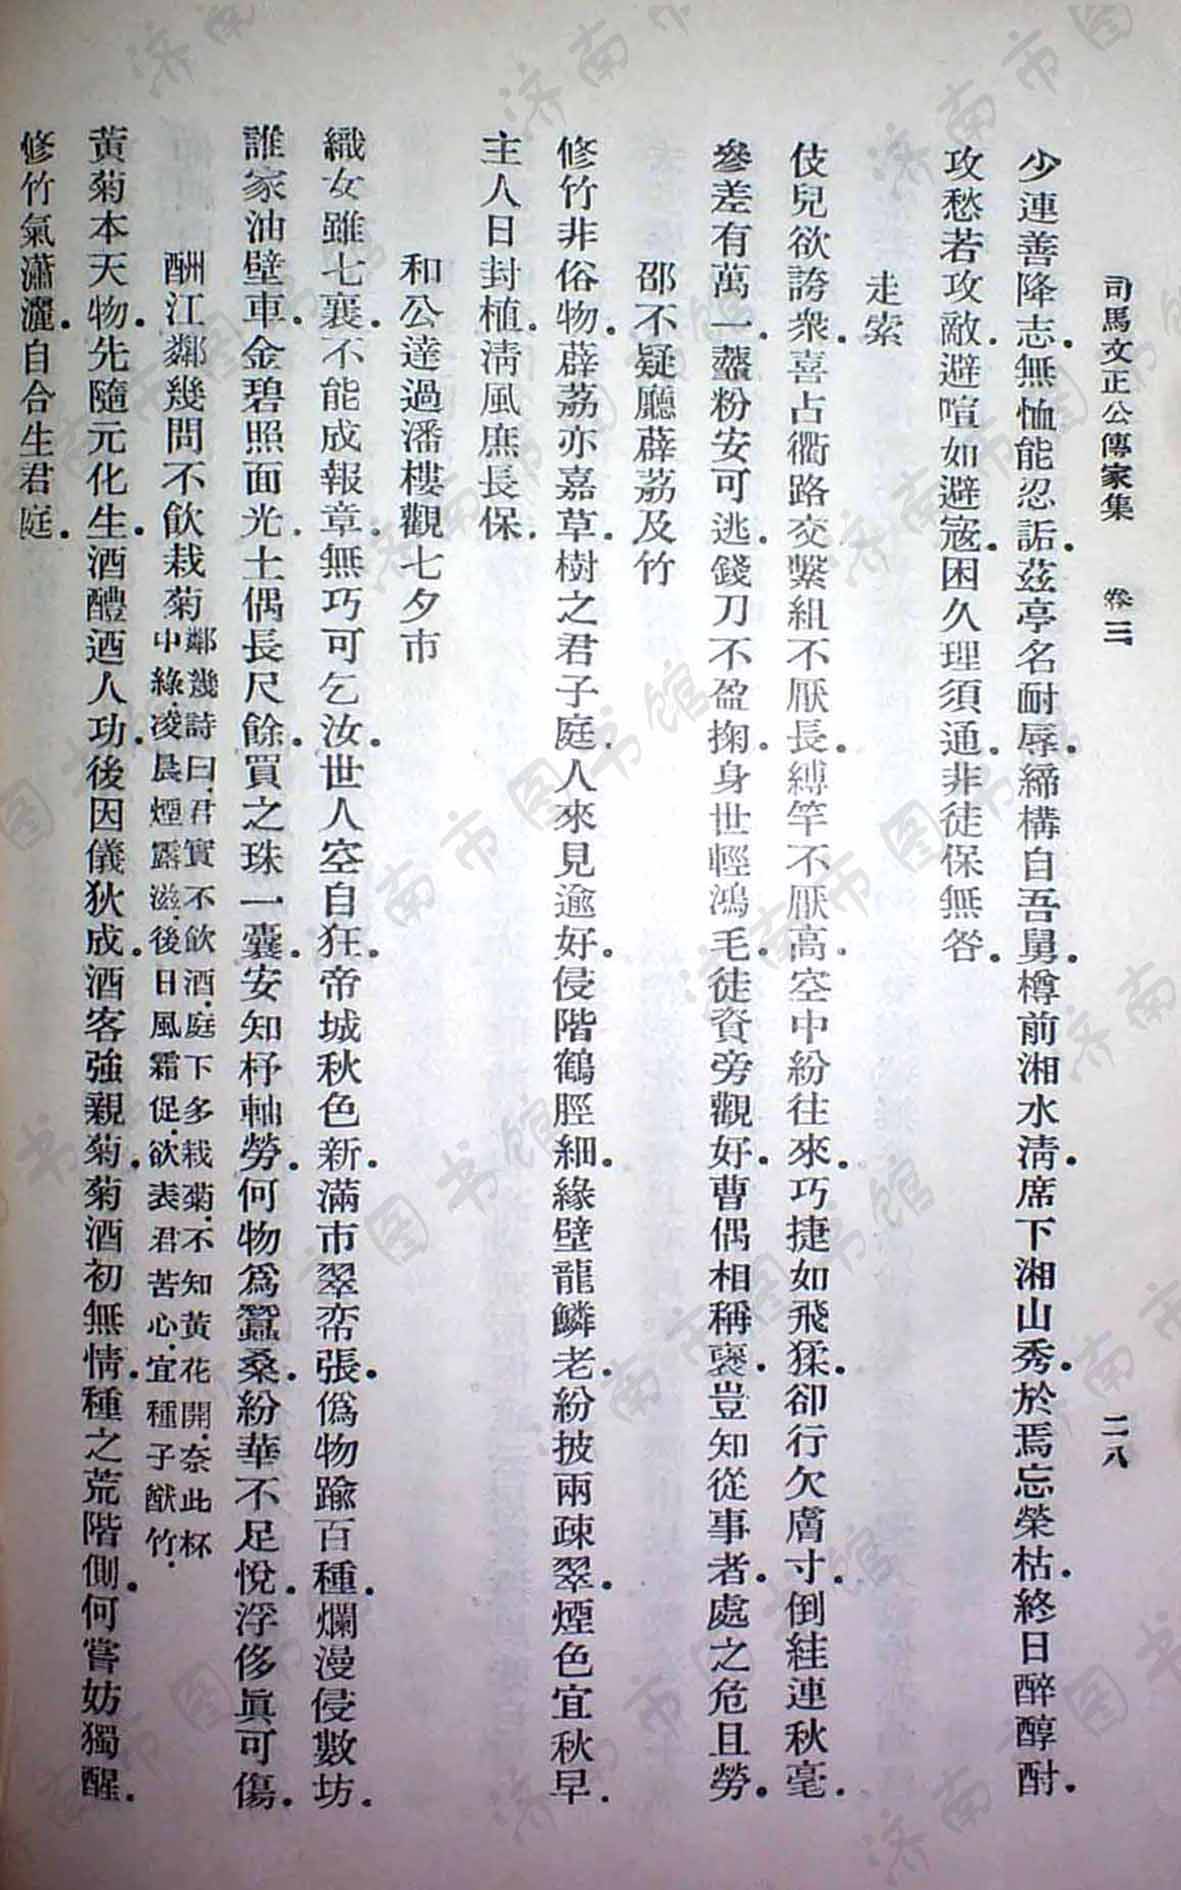 司馬文正公傳家集 卷三 二八
少連善降志.無恤能忍詬.茲亭名耐辱.締構自吾舅.樽前湘水清.席下湘山秀.於焉忘榮枯.終日醉醇酎.
攻愁若攻敵.避喧如避寇.困久理須通.非徒保無咎.
走索
伎兒欲誇衆.喜占衢路交.繫組不厭長.縛竿不厭高.空中紛往來.巧捷如飛猱.卻行欠膚寸.倒絓連秋毫.
參差有萬一.虀粉安可逃.錢刀不盈掬.身世輕鴻毛.徒資旁觀好.曹偶相稱褒.豈知從事者.處之危且勞.
邵不疑廳薜荔及竹
修竹非俗物.薜荔亦嘉草.樹之君子庭.人來見逾好.侵階鶴脛細.緣壁龍鱗老.紛披兩疎翠.煙色宜秋早.
主人日封植.淸風庶長保.
和公達過潘樓觀七夕市
織女雖七襄.不能成報章.無巧可乞汝.世人空自狂.帝城秋色新.滿市翠帟張.僞物踰百種.爛漫侵數坊.
誰家油壁車.金碧照面光.土偶長尺餘.買之珠一囊.安知杼軸勞.何物爲蠶桑.紛華不足悅.浮侈眞可傷.
酬江鄰幾問不飮栽菊 鄰幾詩曰.君實不飮酒.庭下多栽菊.不知黃花開.奈此杯
中綠.凌晨煙露滋.後日風霜促.欲表君苦心.宜種子猷竹.
黃菊本天物.先隨元化生.酒醴迺人功.後因儀狄成.酒客強親菊.菊酒初無情.種之荒階側.何嘗妨獨醒.
修竹氣瀟灑.自合生君庭.